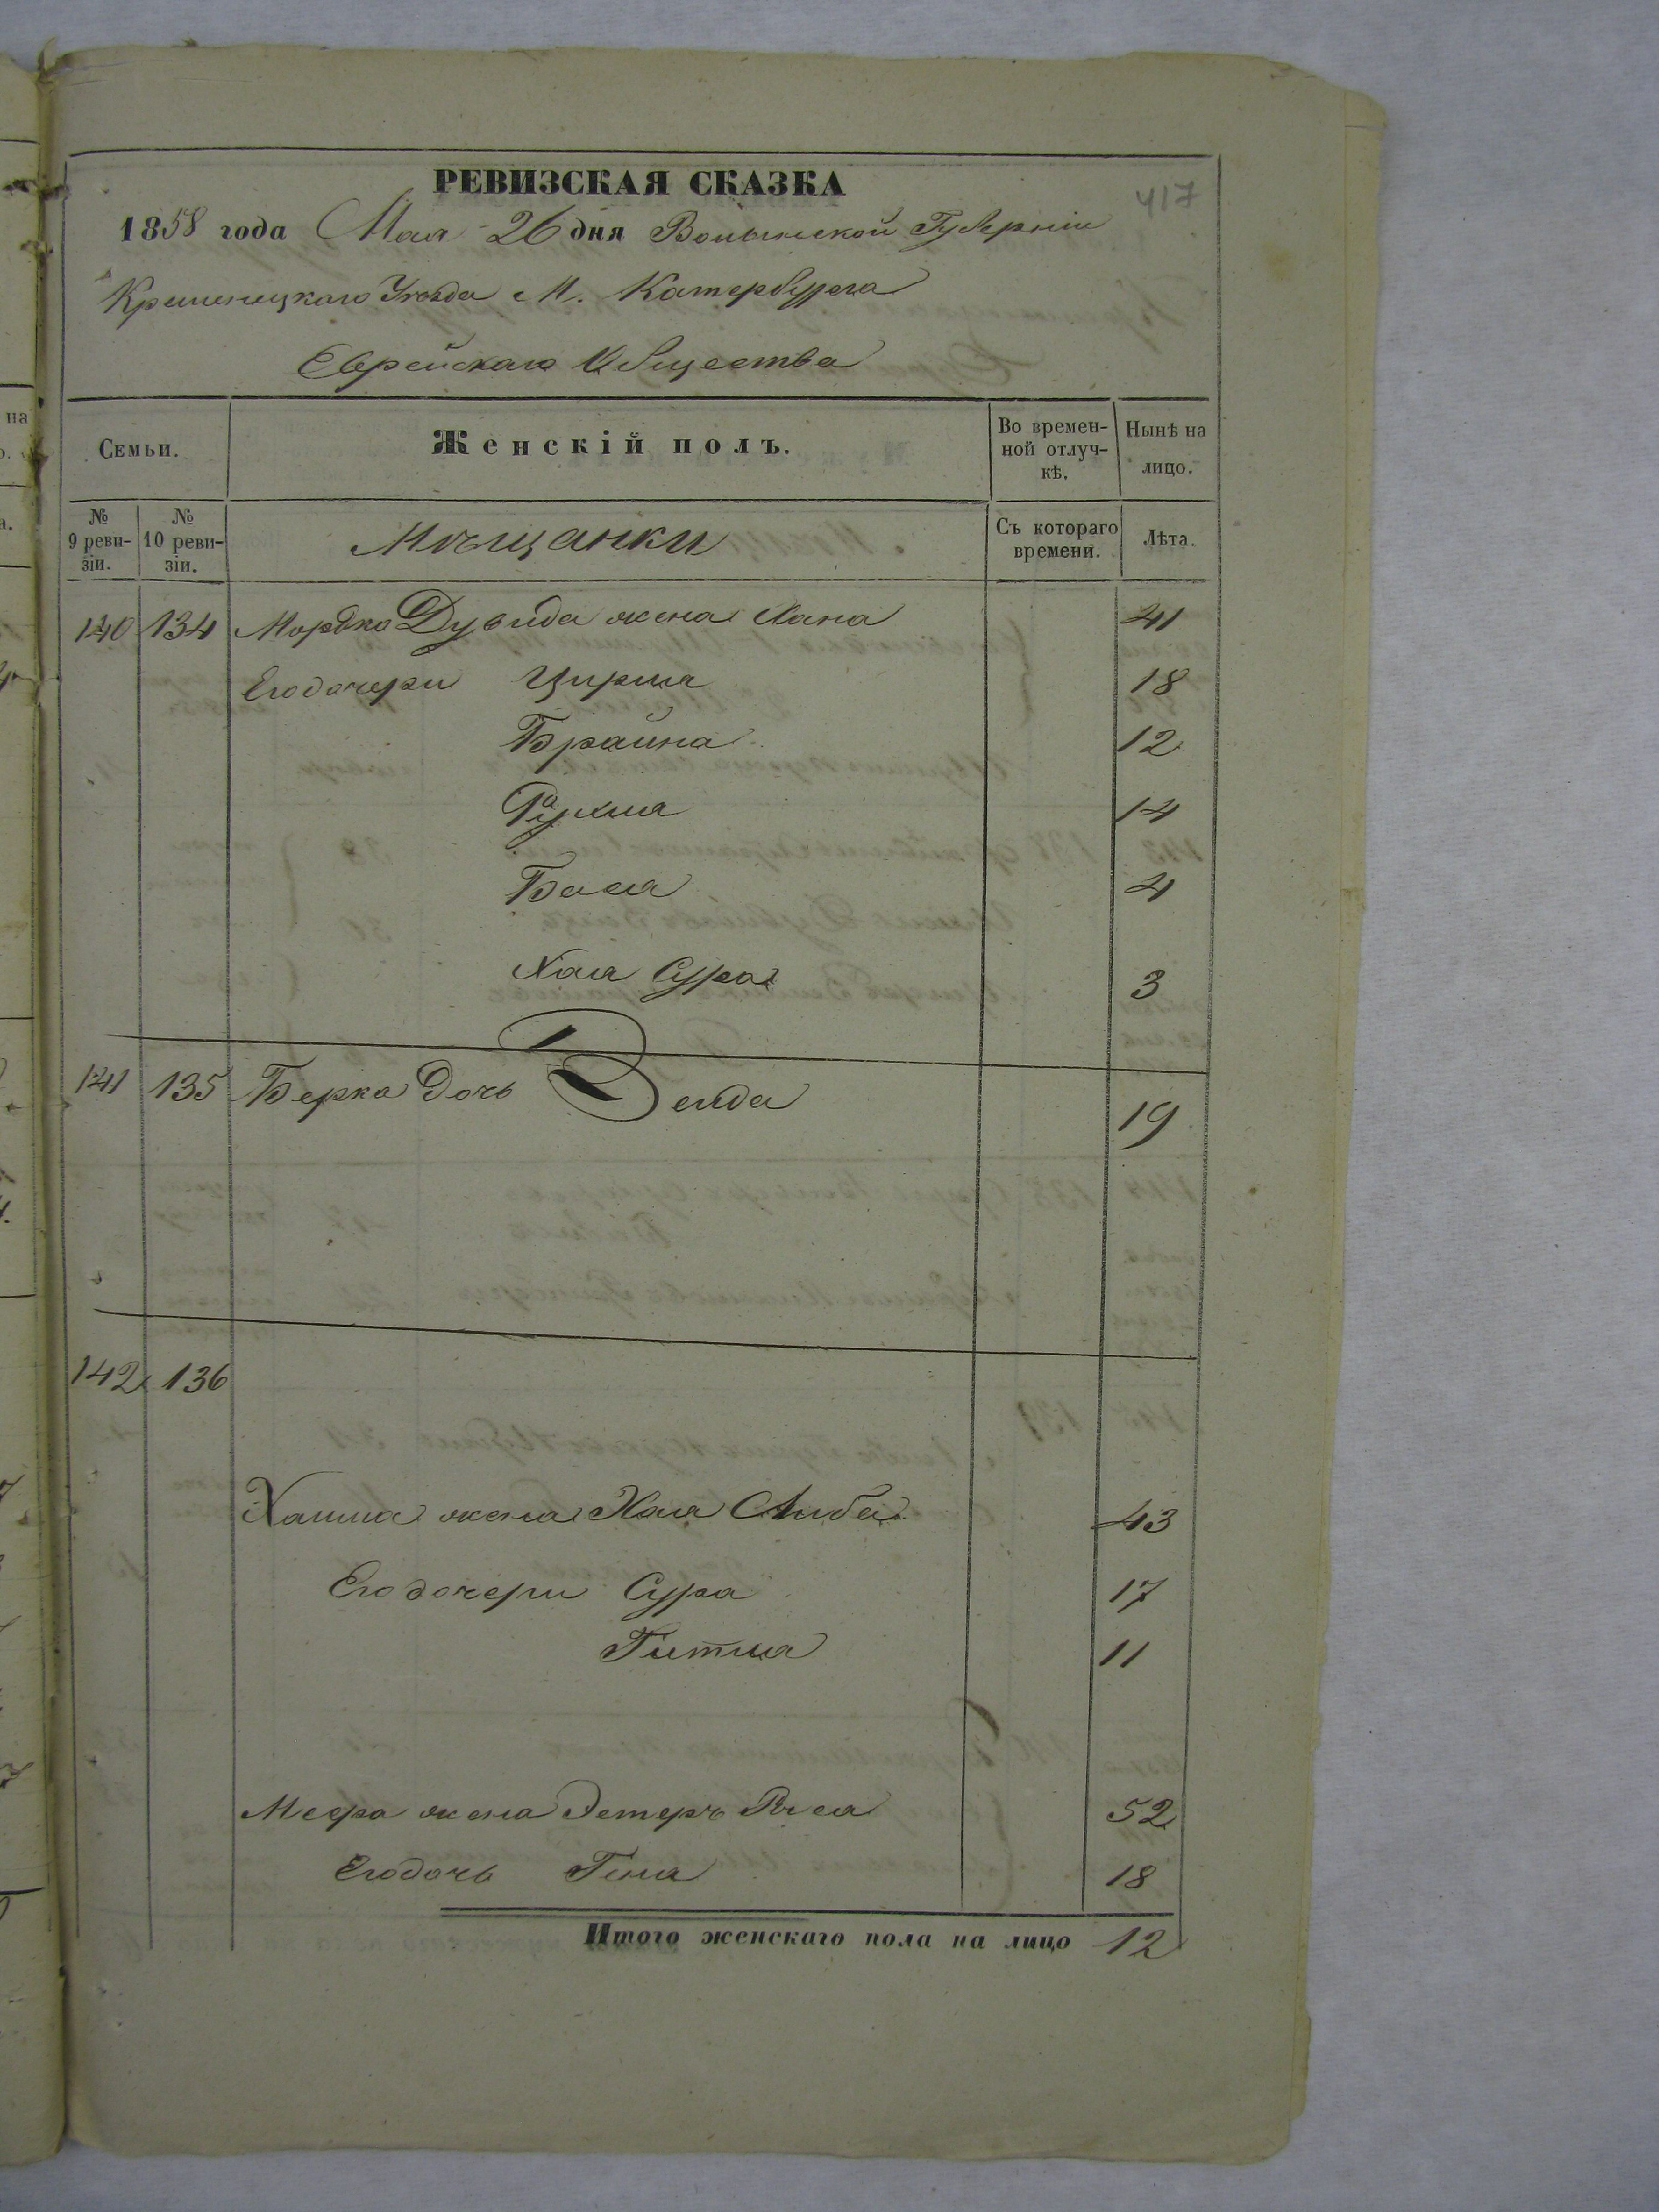 РЕВИЗСКАЯ СКАЗКА
417
1858 года Мая 26 дня Волынской Губерніи
Кременецкаго Уѣзда М. Катербурга
Еврейскаго Общества
Семьи.
Женскій полъ.
Во времен-
ной отлуч-
кѣ.
Нынѣ на
лицо.
№
9 реви-
зіи.
№
10 реви-
зіи.
Мѣщанки
Съ котораго
времени.
Лѣта.
140 134 Мордка Дувида жена Хана 41
Его дочери Цирля 18
Брайна 12
Рухля 14
Бася 4
Хая Сура 3
141 135 Берка дочь Зелда 19
142 136
Хаима жена Хая Либа 43
Его дочери Сура 17
Гитля 11
Меера жена Этеръ 52
Его дочь 18
Итого женскаго пола на лицо 12